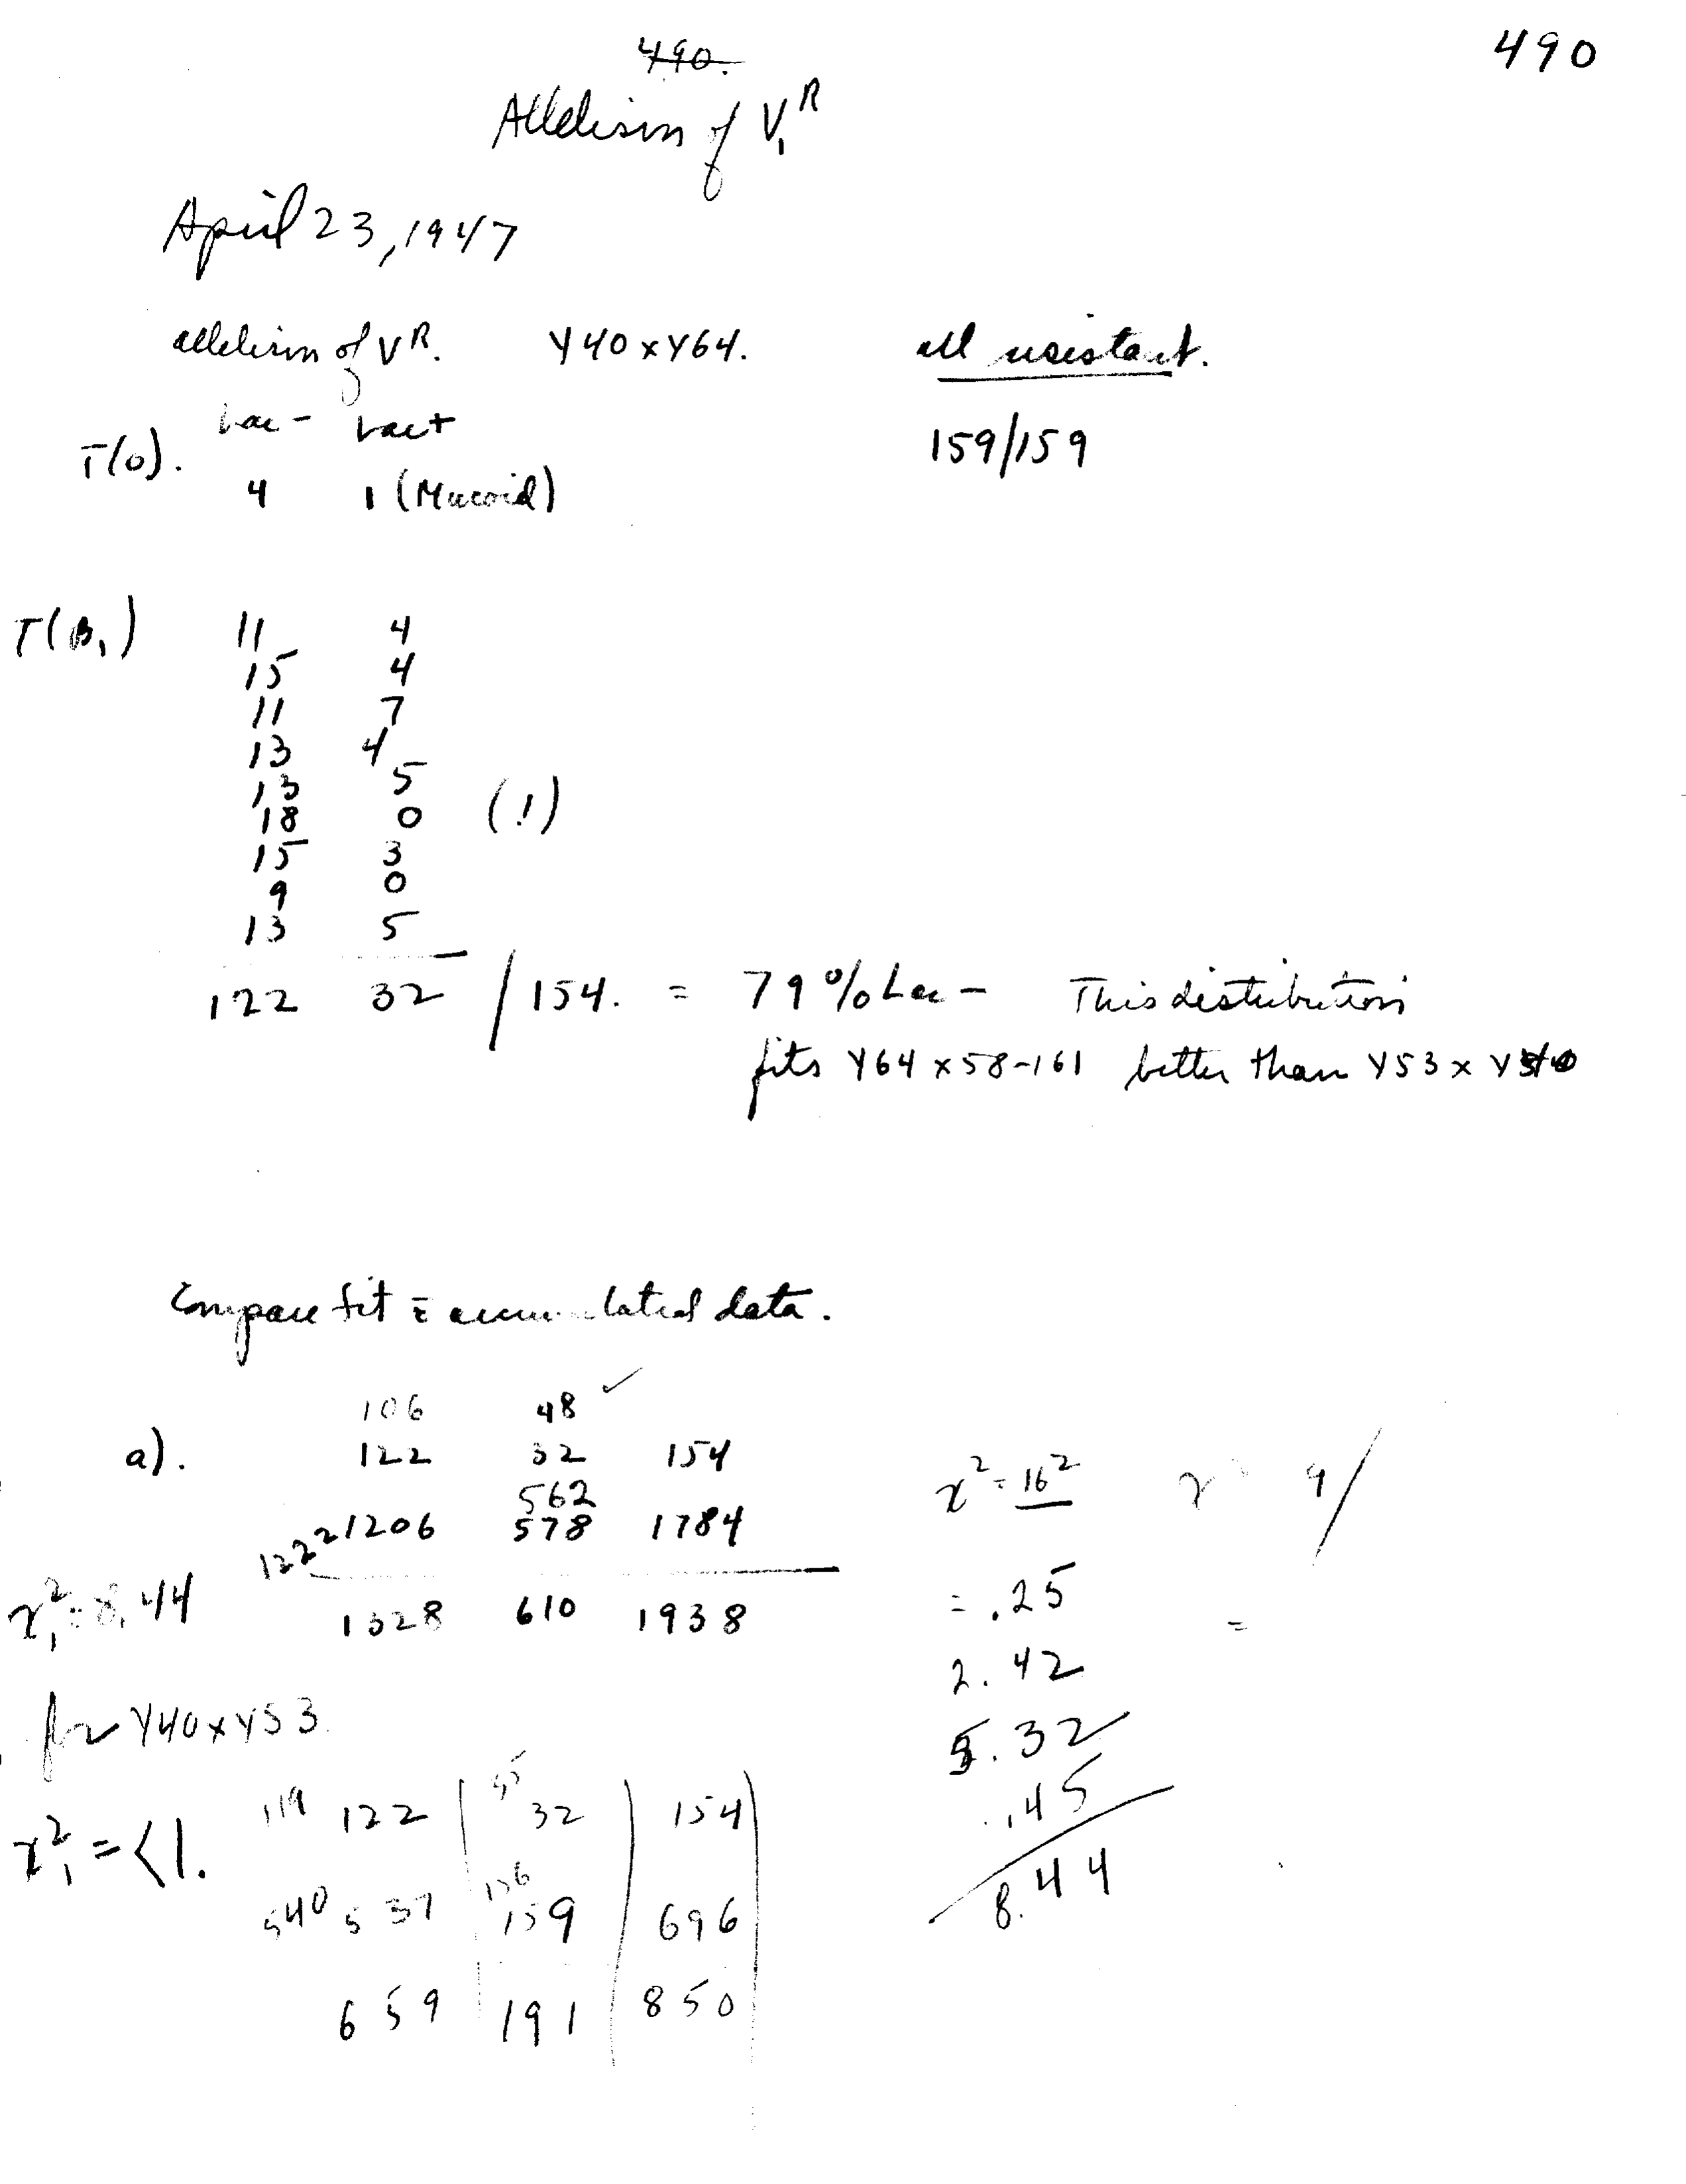 490.
490
Allelism of V₁ᴿ
April 23, 1947
allelism of Vᴿ. Y40 x Y64. all resistant.
Lac- Lac+
T(0). 159/159
4 1 (Mucoid)
T(B₁) 11 4
15 4
11 7
13 4
13 5
18 0 (!)
15 3
9 0
13 5
122 32 / 154. = 79% Lac - This distribution
fits Y64 x 58-161 better than Y53 x Y40
Compare fit c̄ accumulated data.
106 48 ✓
a). 122 32 154 χ² = 16²
562
1222 1206 578 1784
χ₁² = 8.44 1328 610 1938
= .25 =
2.42
5.32
.45
8.44
for Y40 x Y53.
119 122 32 154
χ²₁ = <1.
156
540 537 159 696
659 191 850